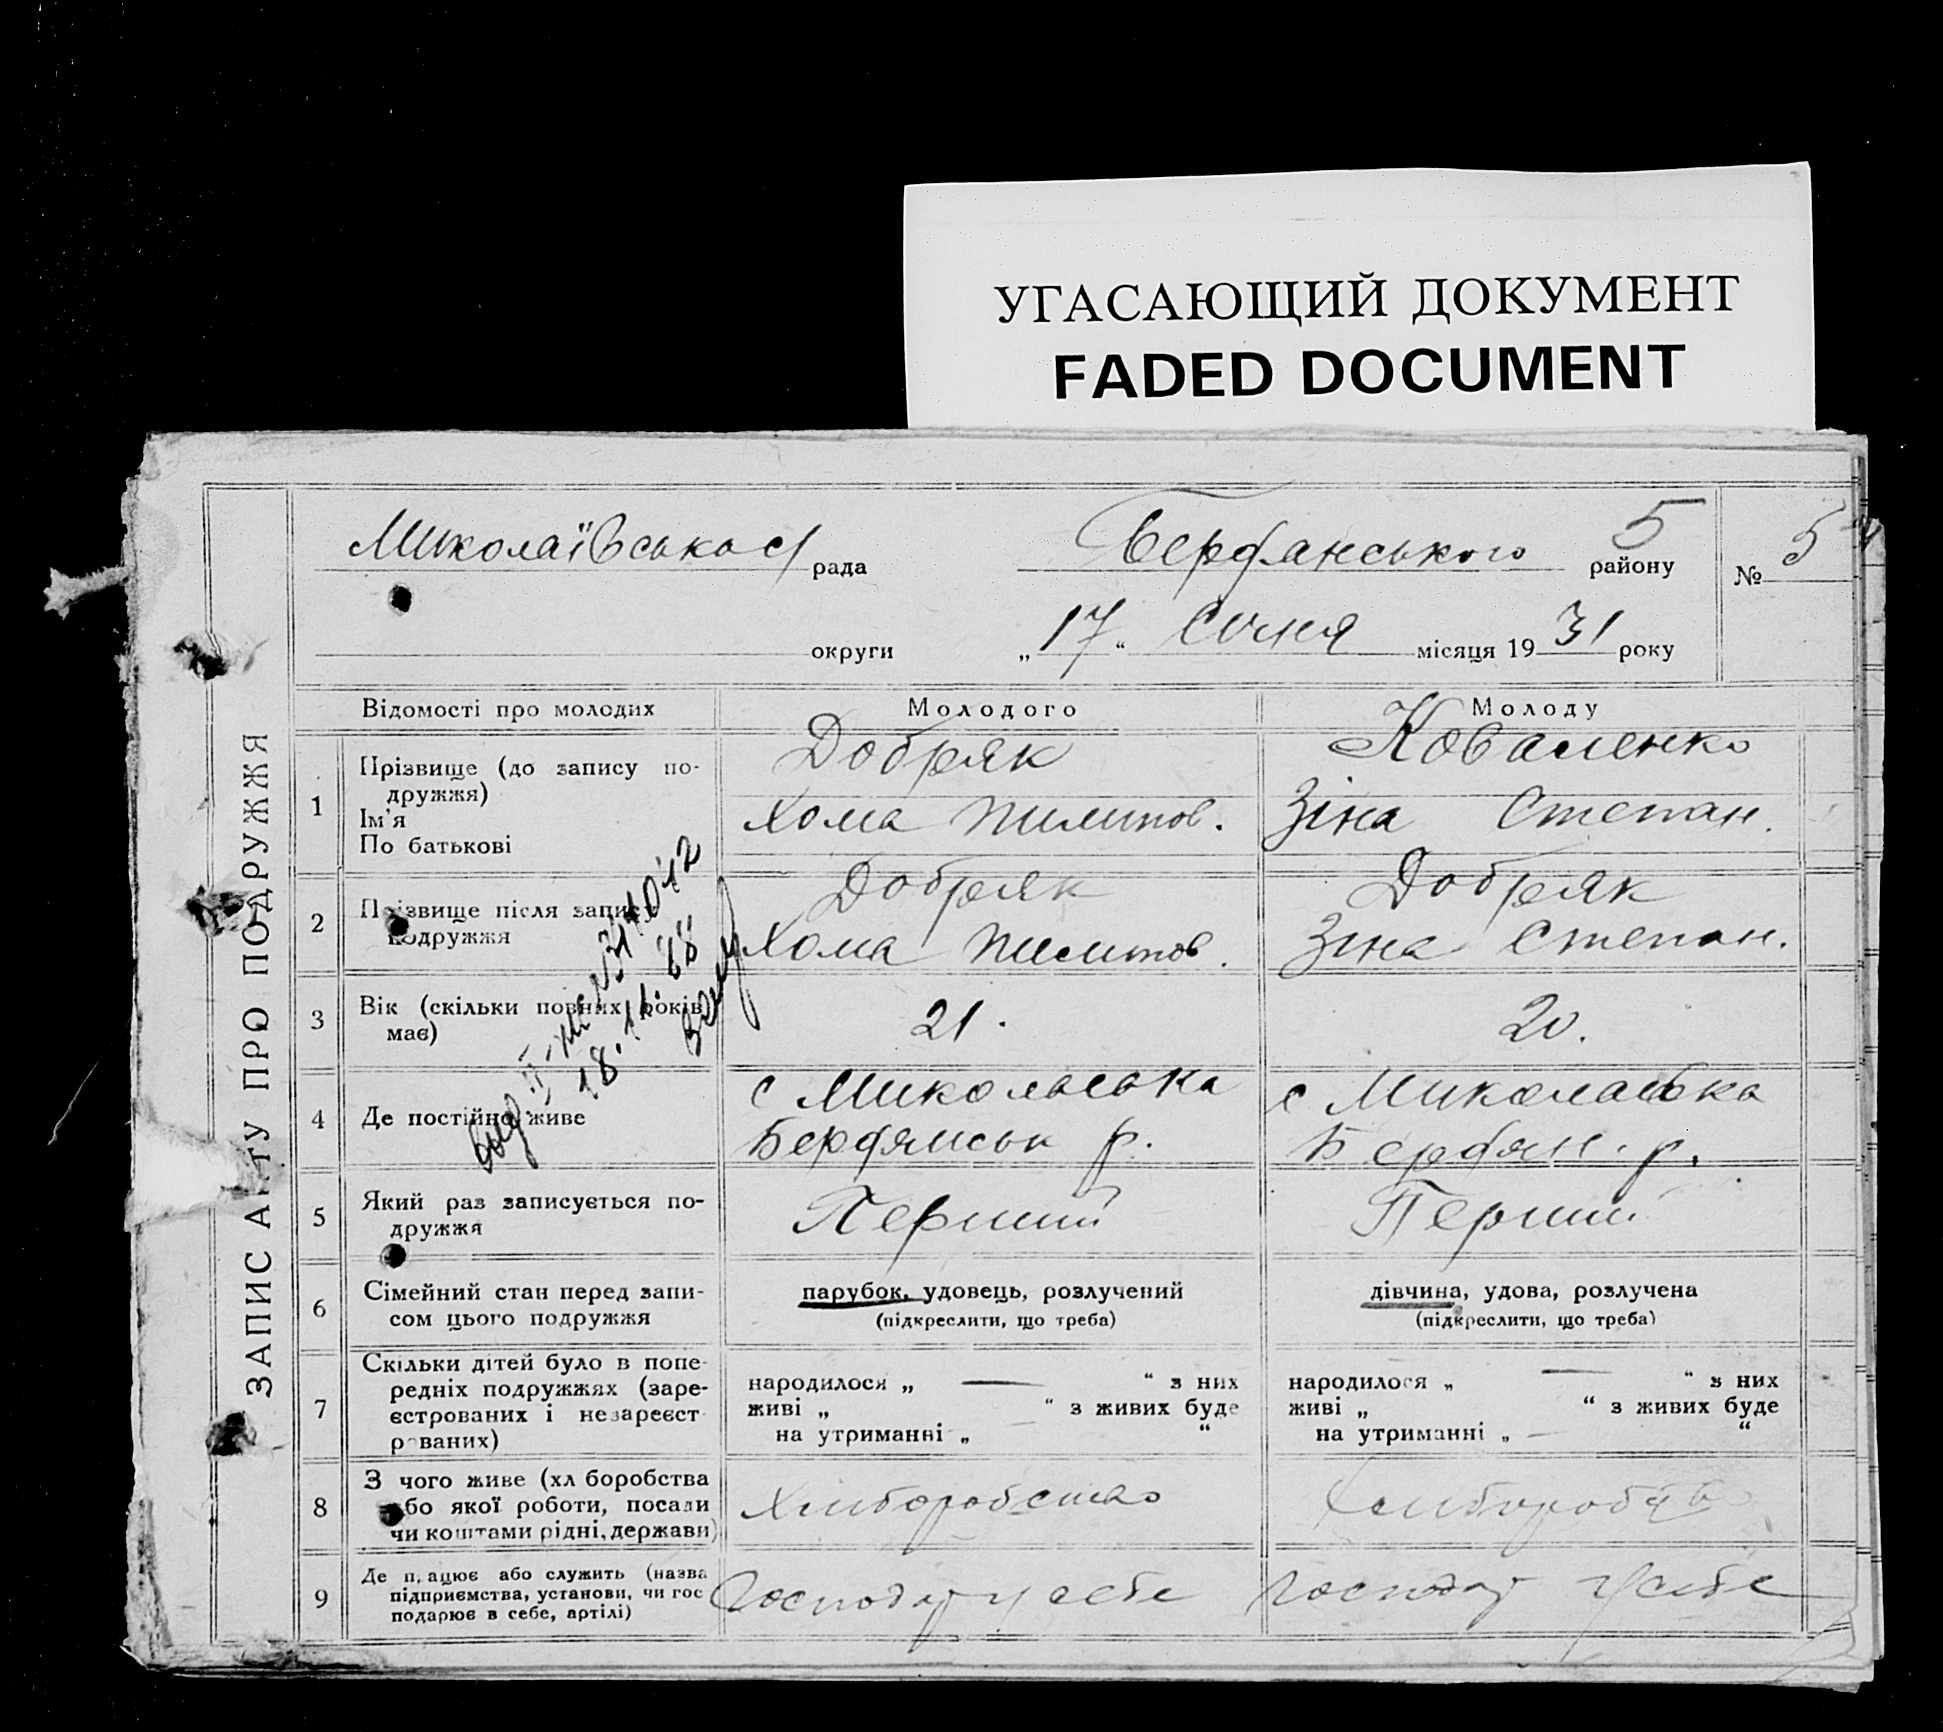 УГАСАЮЩИЙ ДОКУМЕНТ
FADED DOCUMENT
ЗАПИС АКТУ ПРО ПОДРУЖЖЯ
Миколаївська с/рада Бердянського району 5 № 5
округи „17“ Січня місяця 1931 року
Відомості про молодих Молодого Молоду
1 Прізвище (до запису по-
дружжя)
Ім'я
По батькові
Добряк
Хома Пилипов.
Коваленко
Зіна Степан.
2 Прізвище після запису
подружжя
Добряк
Хома Пилипов.
Добряк
Зіна Степан.
3 Вік (скільки повних років
має)
21.
20.
4 Де постійно живе
с Микольська
Бердянськ р.
с Миколаївка
Бердян. р.
5 Який раз записується по-
дружжя
Перший
Перший
6 Сімейний стан перед запи-
сом цього подружжя
парубок, удовець, розлучений
(підкреслити, що треба)
дівчина, удова, розлучена
(підкреслити, що треба)
7 Скільки дітей було в попе-
редніх подружжях (заре-
єстрованих і незареєст
рованих)
народилося „ — “ з них
живі „ “ з живих буде
на утриманні „ “
народилося „ — “ з них
живі „ “ з живих буде
на утриманні „ — “
8 З чого живе (хл боробства
або якої роботи, посади
чи коштами рідні, держави)
Хліборобство
9 Де працює або служить (назва
підприємства, установи, чи гос
подарює в себе, артілі)
Господар у себе
Господар у себе
18.11.68